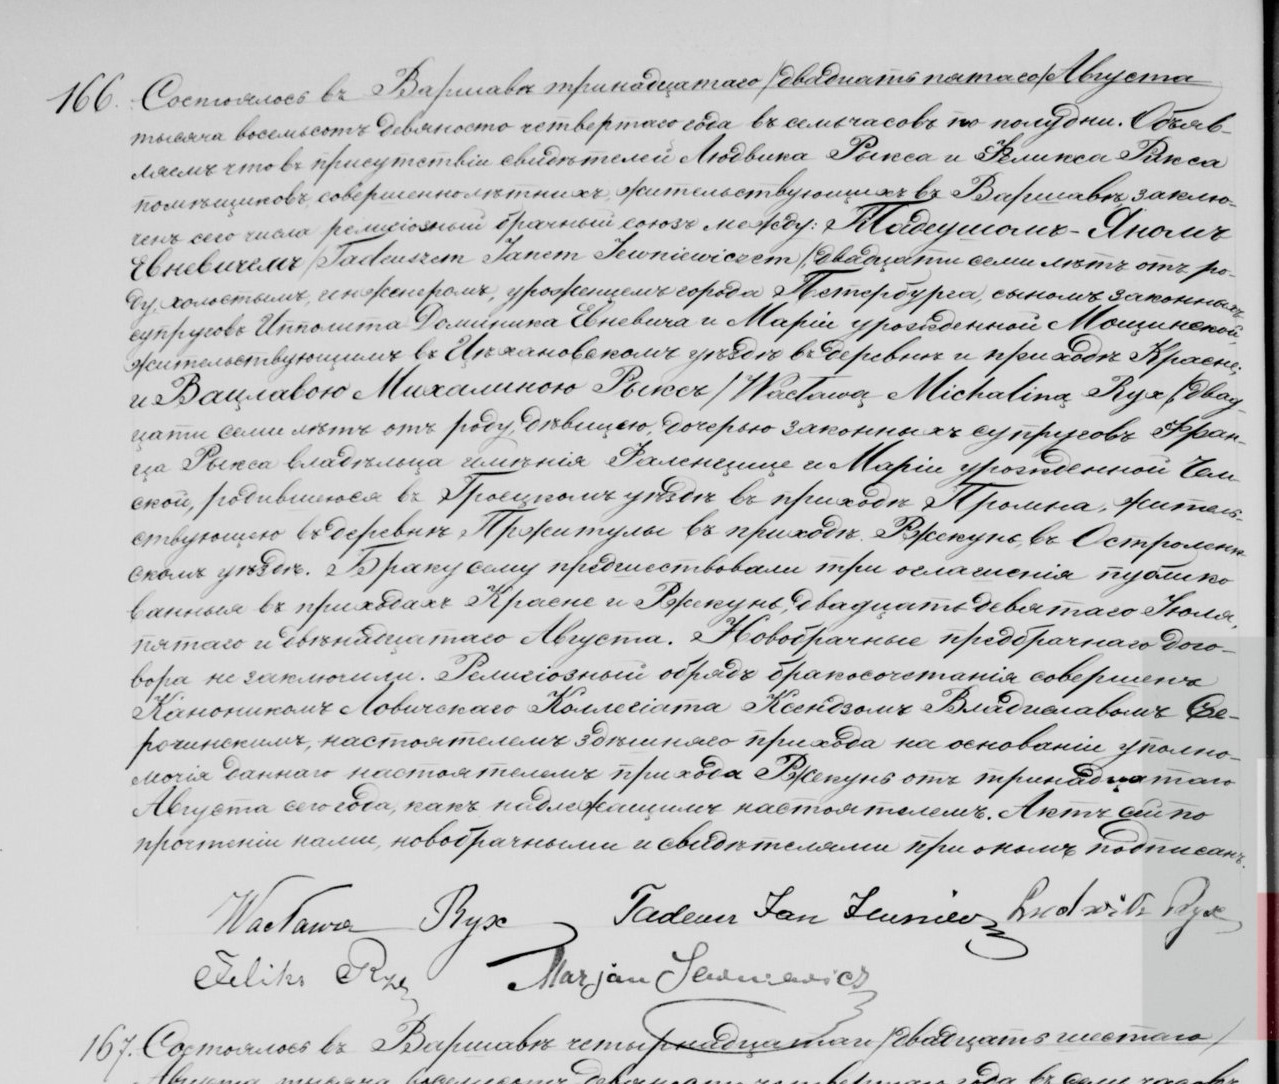 166. Состоялось въ Варшавѣ тринадцатаго /двадцать пятаго/ Августа
тысяча восемьсотъ девяносто четвертаго года въ семь часовъ по полудни. Объяв-
ляемъ что въ присутствіи свидѣтелей Людвика Рыкса и Феликса Рыкса
помѣщиковъ, совершеннолѣтнихъ, жительствующихъ въ Варшавѣ заклю-
ченъ сего числа религіозный брачный союзъ между: Тадеушомъ-Яномъ
Евневичемъ /Tadeuszem Janem Jewniewiczem/, двадцати семи лѣтъ отъ ро-
ду, холостымъ, инженеромъ, уроженцемъ города Петербурга, сыномъ законныхъ
супруговъ Ипполита-Доминика Евневича и Маріи урожденной Мощинской,
жительствующимъ въ Цѣхановскомъ уѣздѣ въ деревнѣ и приходѣ Красне;
и Вацлавою Михалиною Рыксъ /Wacławą Michaliną Ryx/, двад-
цати семи лѣтъ отъ роду, дѣвицею, дочерью законныхъ супруговъ Фран-
ца Рыкса владѣльца имѣнія Фаленцице и Маріи урожденной
ской, родившеюся въ Гроецкомъ уѣздѣ въ приходѣ Промна, житель-
ствующею въ деревнѣ Пржитулы въ приходѣ Ржекунь, въ Остролен
скомъ уѣздѣ. Браку сему предшествовали три оглашенія публико
ванныя въ приходахъ Красне и Ржекунь, двадцать девятаго Іюля,
пятаго и двѣнадцатаго Августа. Новобрачные предбрачнаго дого-
вора не заключили. Религіозный обрядъ бракосочетанія совершенъ
Каноникомъ Ловичскаго Коллегіата Ксендзомъ Владиславомъ Се-
рочинскимъ, настоятелемъ здѣшняго прихода на основаніи уполно-
мочія даннаго настоятелемъ прихода Ржекунь отъ тринадцатаго
Августа сего года, какъ надлежащимъ настоятелемъ. Актъ сей по
прочтеніи нами, новобрачными и свидѣтелями при ономъ подписанъ.
Wacława Ryx Tadeusz Jan Jewniew Ludwik Ryx
Feliks Ryx Marjan Jewniewicz
167. Состоялось въ Варшавѣ четырнадцатаго /двадцать шестаго/
Августа тысяча восемьсотъ девяносто четвертаго года въ семь часовъ